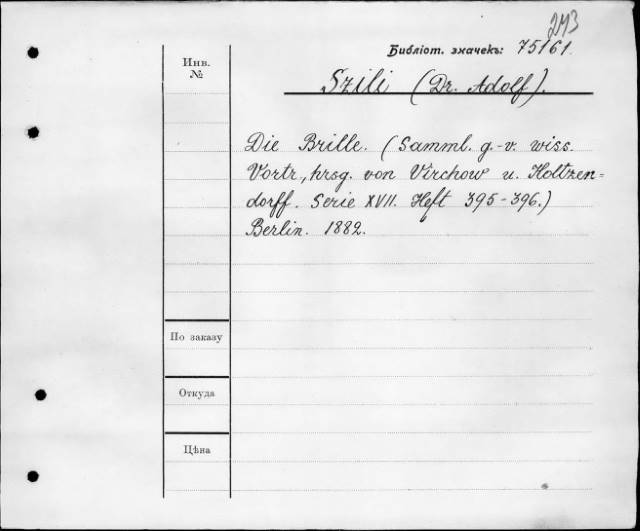 243
Библіот. значекъ: 75161.
Инв.
№
Szili (Dr. Adolf).
Die Brille. (Samml. g.-v. wiss.
Vortr., hrsg. von Virchow u. Holtzen=
dorff. Serie XVII. Heft 395-396.)
Berlin. 1882.
По заказу
Откуда
Цѣна